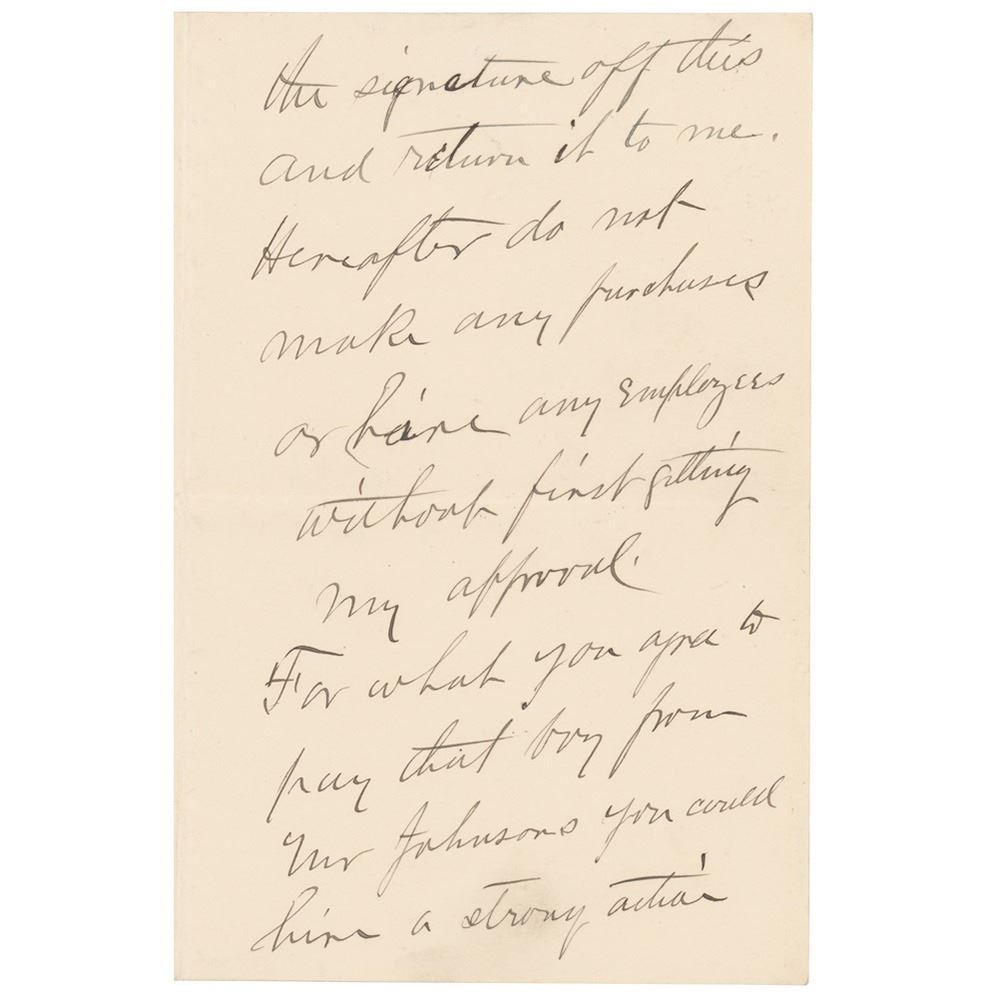 the signature off this
and return it to me.
Hereafter do not
make any purchases
or hire any employees
without first getting
my approval.
For what you agree to
pay that boy from
Mr Johnsons you could
hire a strong active